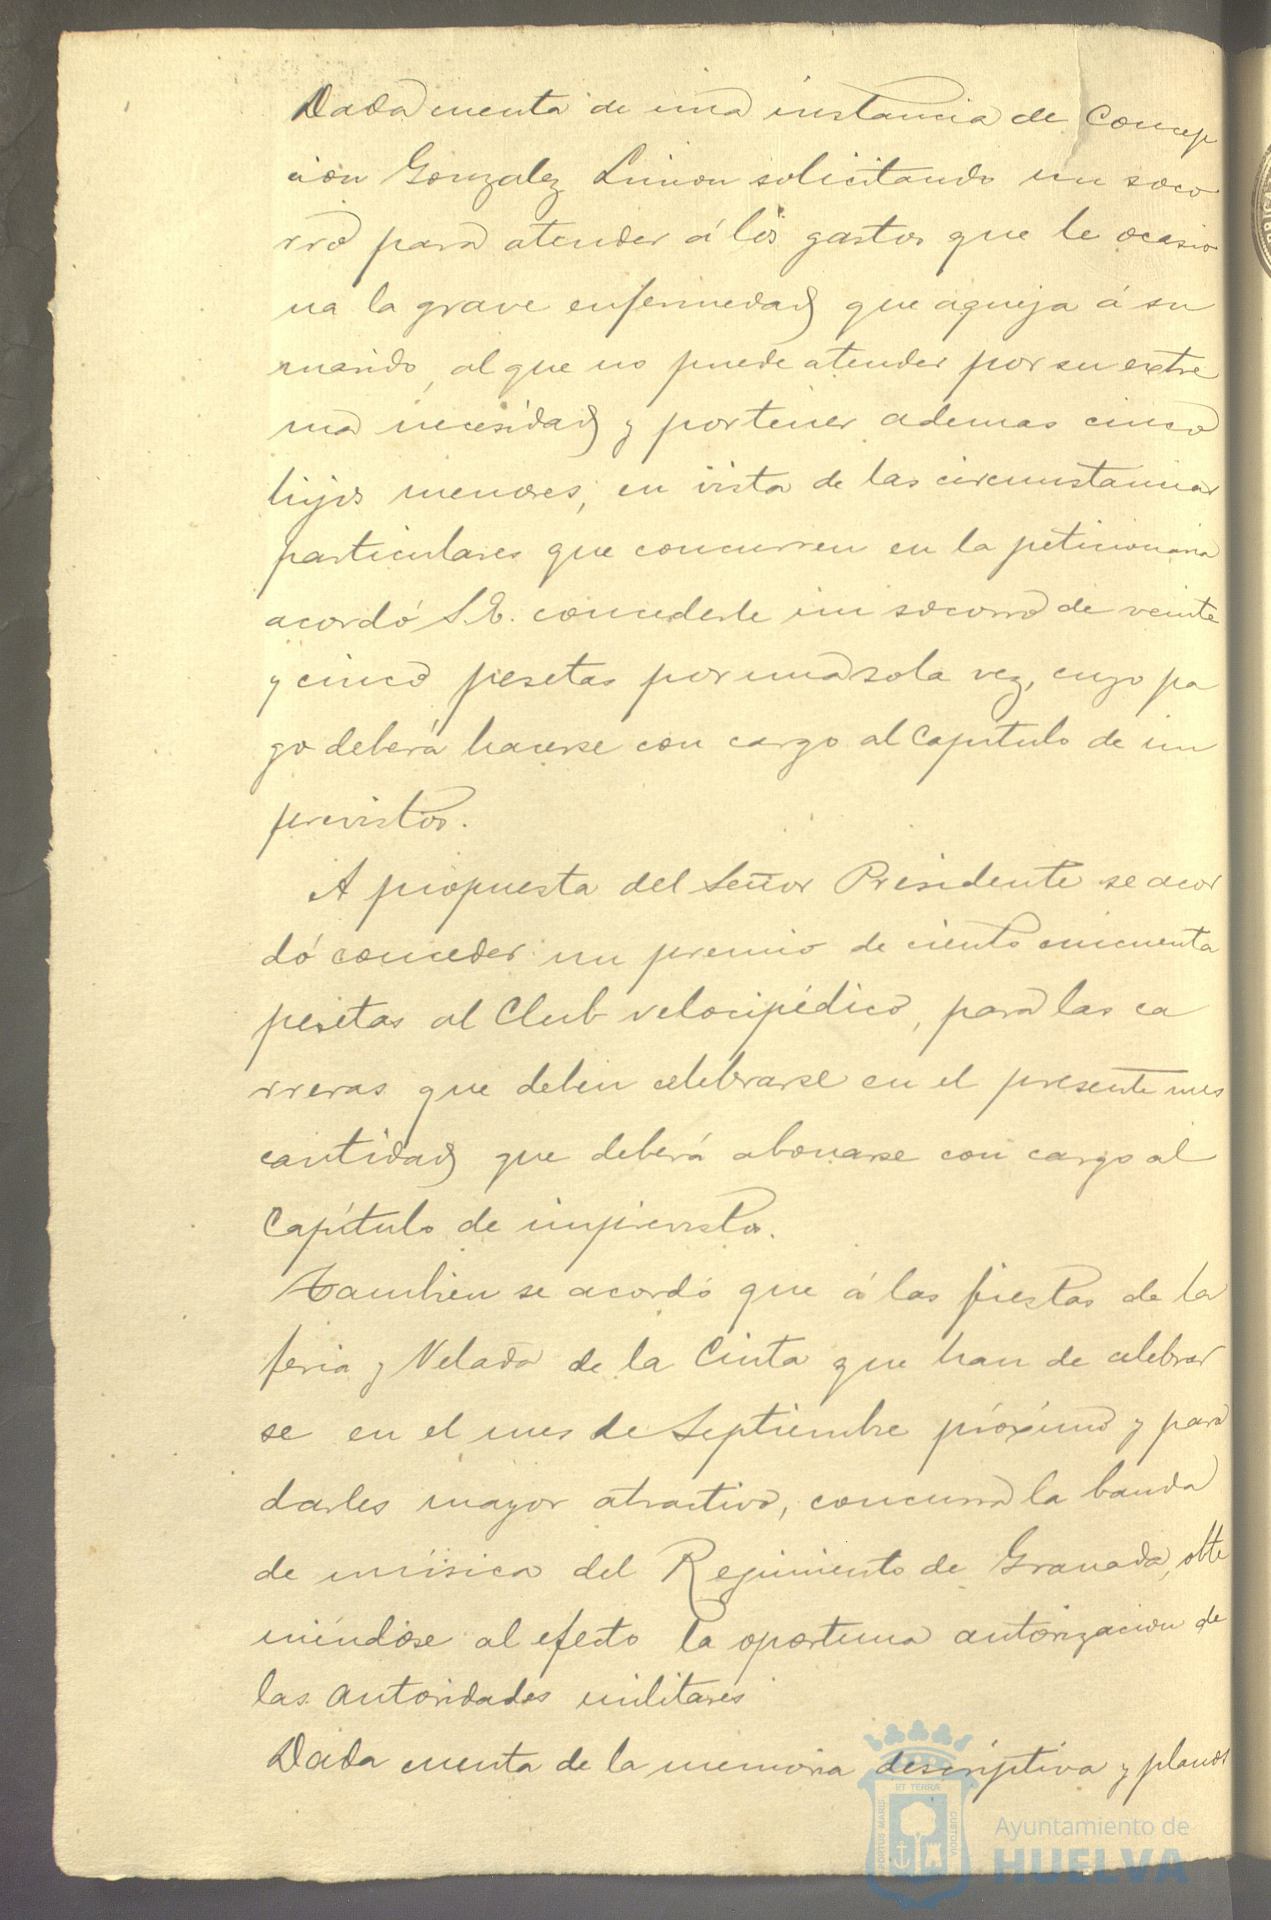 Dada cuenta de una instancia de Concep
cion Gonzalez Limon solicitando un soco
rro para atender á los gastos que le ocasio
na la grave enfermedad que aqueja á su
marido, al que no puede atender por su extre
ma necesidad y por tener ademas cinco
hijos menores, en vista de las circunstancias
particulares que concurren en la peticionaria
acordó S.E. concederle un socorro de veinte
y cinco pesetas por una sola vez, cuyo pa
go deberá hacerse con cargo al Capitulo de im
previstos.
A propuesta del Señor Presidente se acor
dó conceder un premio de ciento cincuenta
pesetas al Club velocipédico, para las ca
rreras que deben celebrarse en el presente mes
cantidad que deberá abonarse con cargo al
Capítulo de imprevistos.
Tambien se acordó que á las fiestas de la
feria y Velada de la Cinta que han de celebrar
se en el mes de Septiembre próximo y para
darles mayor atractivo, concurra la banda
de música del Regimiento de Granada, obte
niéndose al efecto la oportuna autorizacion de
las autoridades militares
Dada cuenta de la memoria descriptiva y planos
PORTUS MARIS ET TERRÆ CUSTODIA
Ayuntamiento de
HUELVA